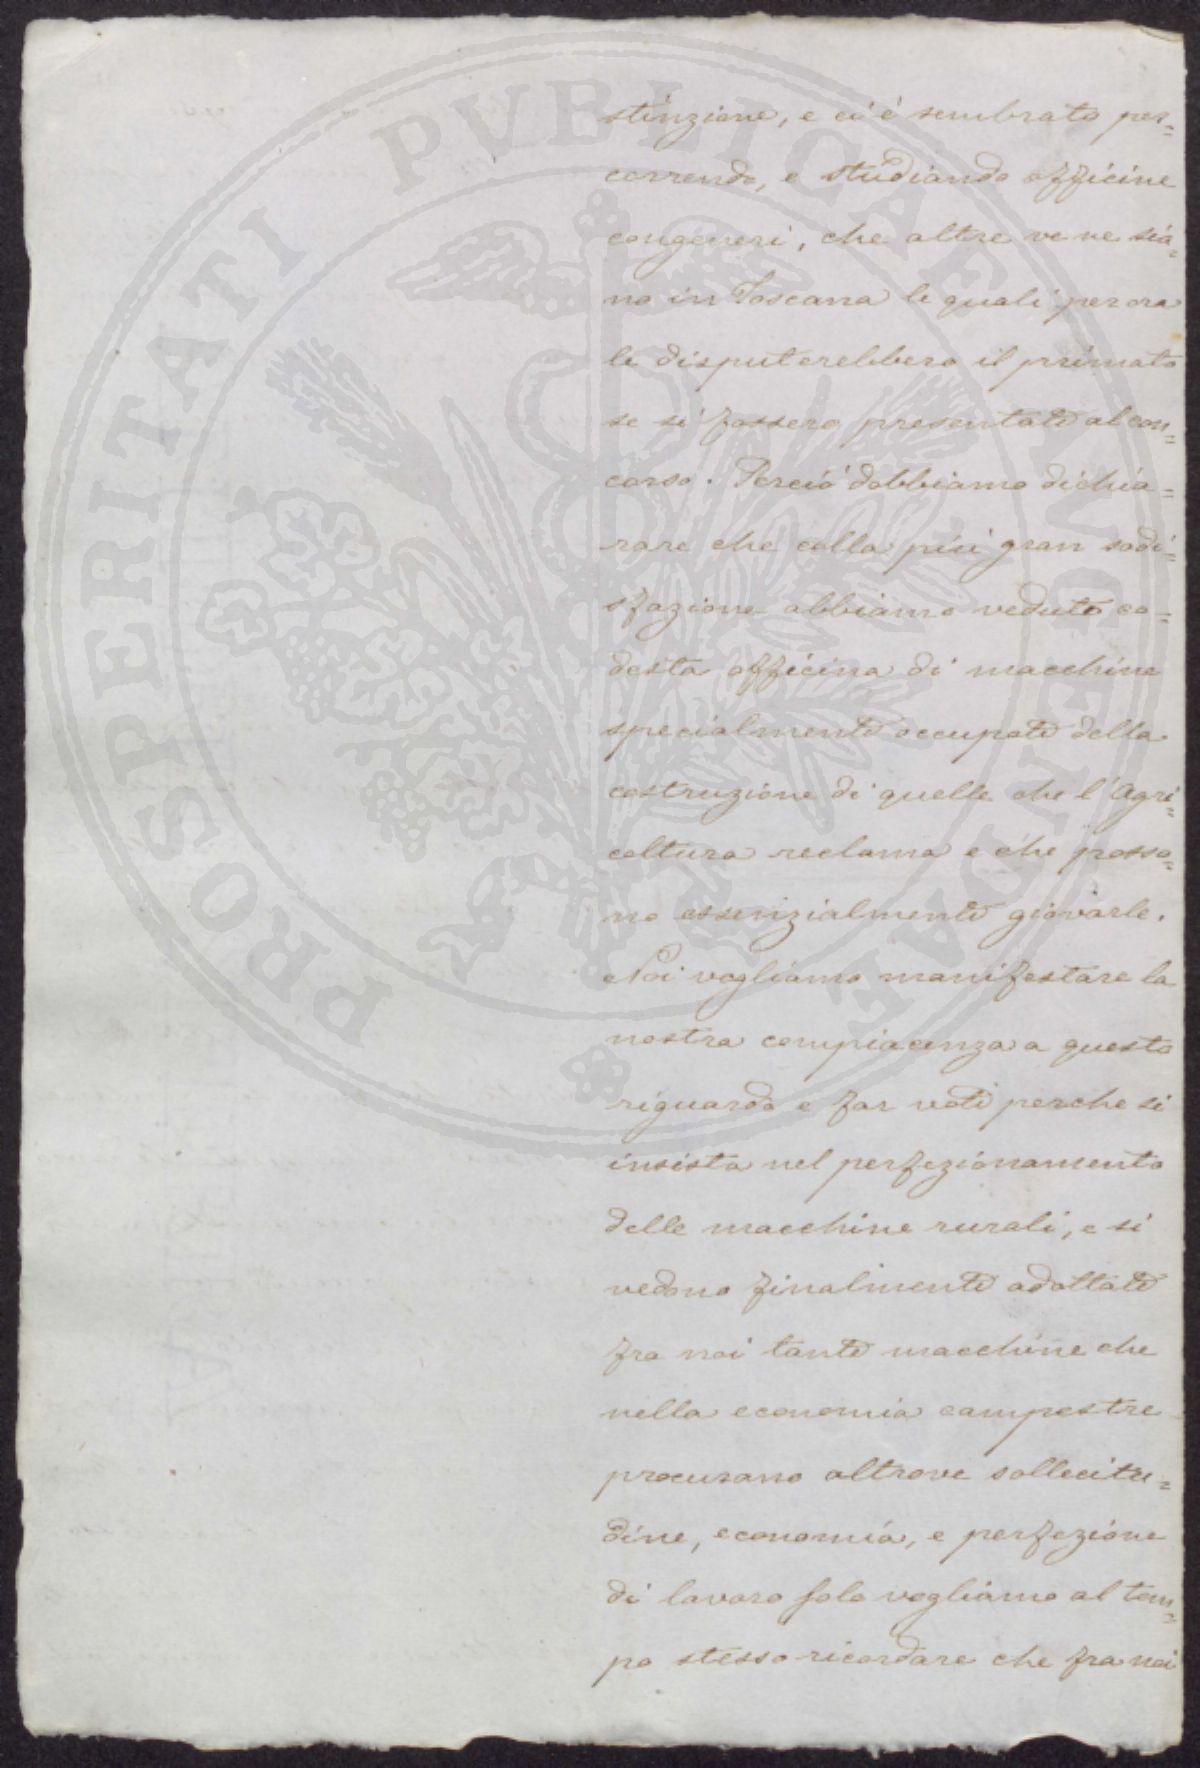 stinzione, e ci è sembrato per=
correndo, e studiando officine
congeneri, che altre ve ne sia=
no in Toscana le quali per ora
le disputerebbero il primato
se si fossero presentate al con=
corso. Perciò dobbiamo dichia=
rare che colla più gran sodi=
sfazione abbiamo veduto co=
desta officina di macchine
specialmente occupate della
costruzione di quelle che l'Agri=
coltura reclama e che posso=
no essenzialmente giovarle.
Noi vogliamo manifestare la
nostra compiacenza a questo
riguardo e far voti perche si
insista nel perfezionamento
delle macchine rurali, e si
vedono finalmente adottate
fra noi tante macchine che
nella economia campestre
procurano altrove sollecitu=
dine, economia, e perfezione
di lavoro solo vogliamo al tem=
po stesso ricordare che fra noi
PROSPERITATI PVBLICAE AVGENDAE